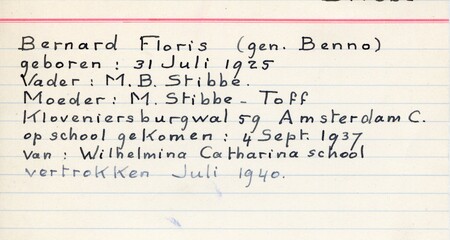 Bernard Floris (gen. Benno)
geboren : 31 Juli 1925
Vader : M.B. Stibbe.
Moeder : M. Stibbe - Toff
Kloveniersburgwal 59 Amsterdam C.
op school gekomen : 4 Sept. 1937
van : Wilhelmina Catharina school
vertrokken Juli 1940.